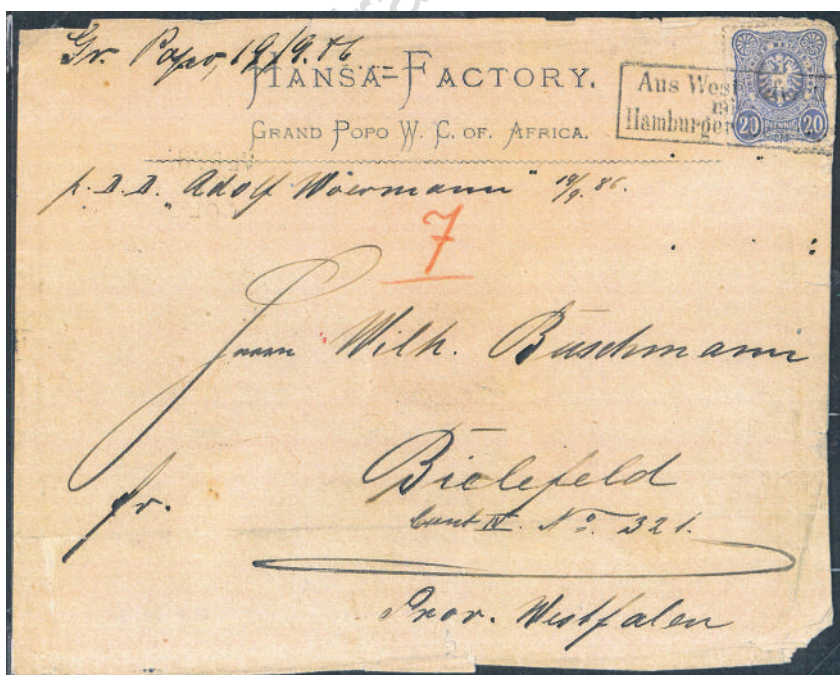 Gr. Popo, 19/9.86
HANSA=FACTORY.
GRAND POPO W. C. OF. AFRICA.
Aus West
mi
Hamburger
20 PFENNIG 20
p. D. D. "Adolf Woermann" 19/9. 86.
7
Herrn Wilh. Buschmann
Bielefeld
fr.
Cant IV. No. 321.
Prov. Westfalen